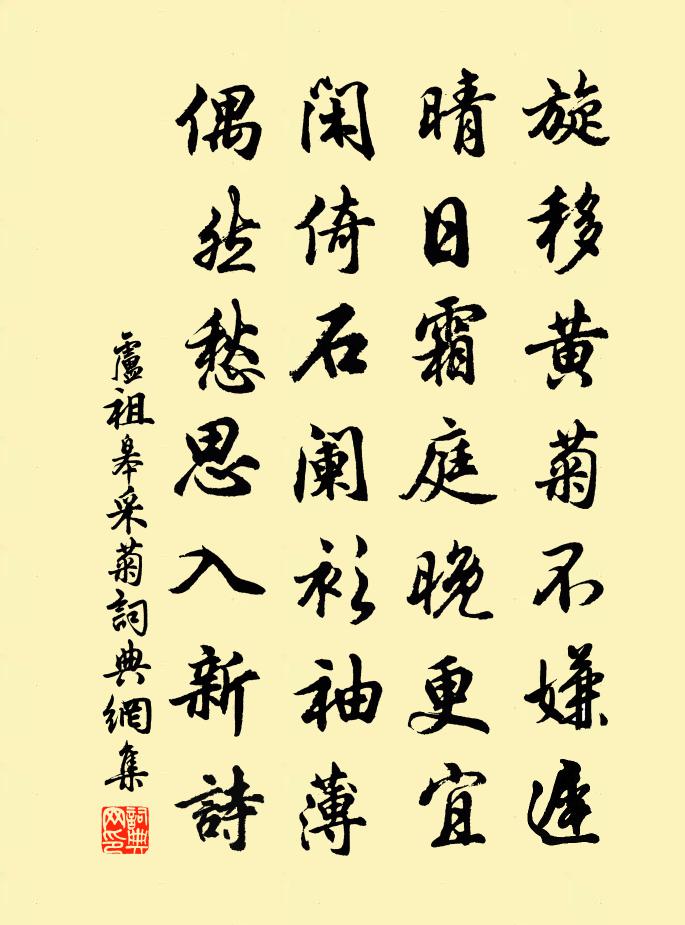 旋移黄菊不嫌遲
晴日霜庭晚更宜
閑倚石阑衫袖薄
偶然愁思入新詩
盧祖皋采菊詞典網集
詞典網印